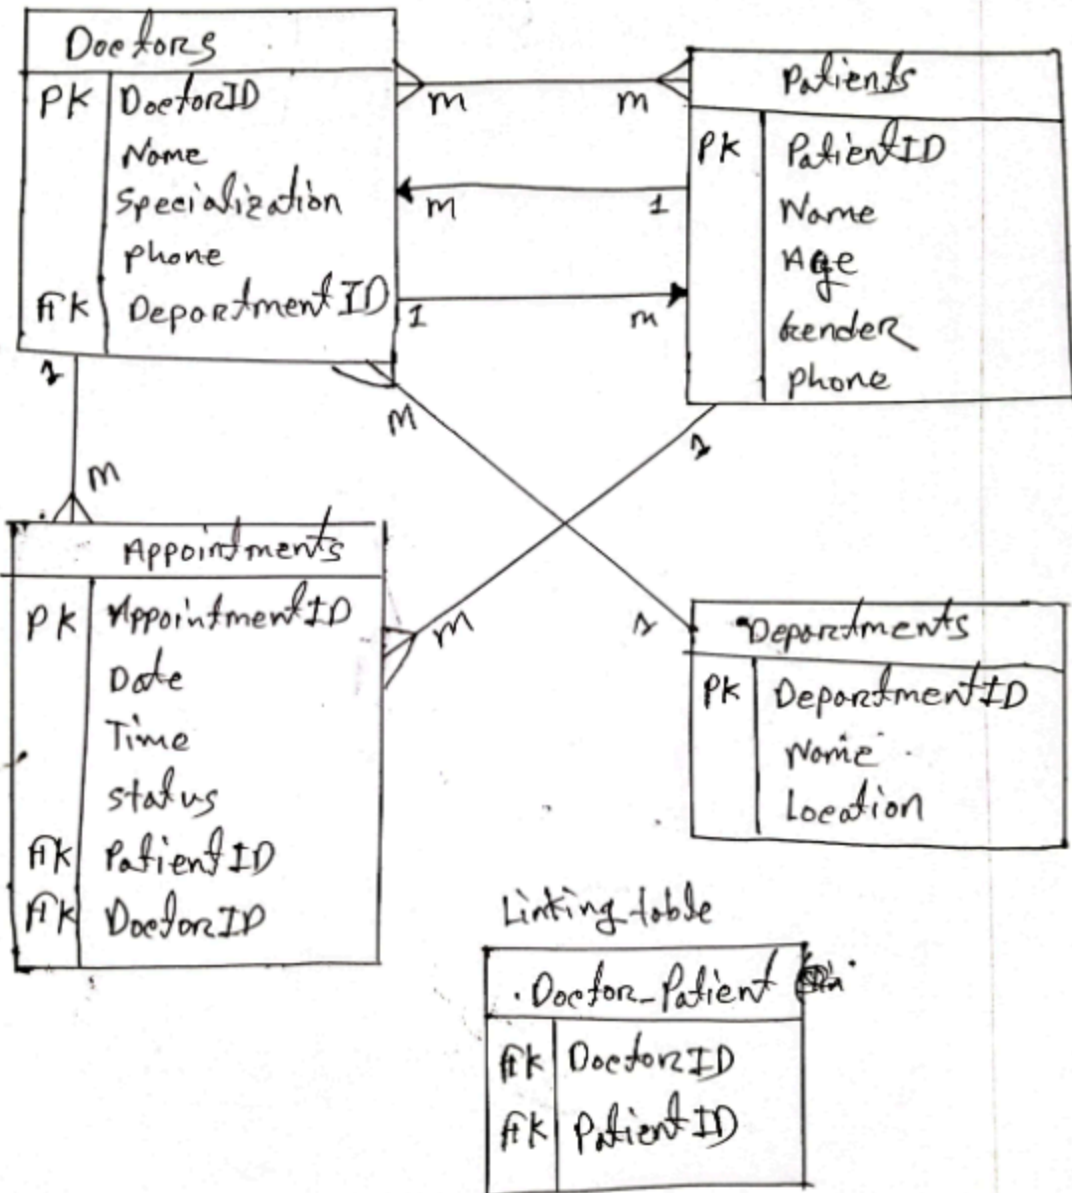 Doctors
PK DoctorID
Name
Specialization
phone
FK DepartmentID
Patients
PK PatientID
Name
Age
Gender
phone
m m
m 1
1 m
1
m
M
1
m
1
Appointments
PK AppointmentID
Date
Time
status
FK PatientID
FK DoctorID
Departments
PK DepartmentID
Name
Location
Linking table
Doctor_Patient
FK DoctorID
FK PatientID